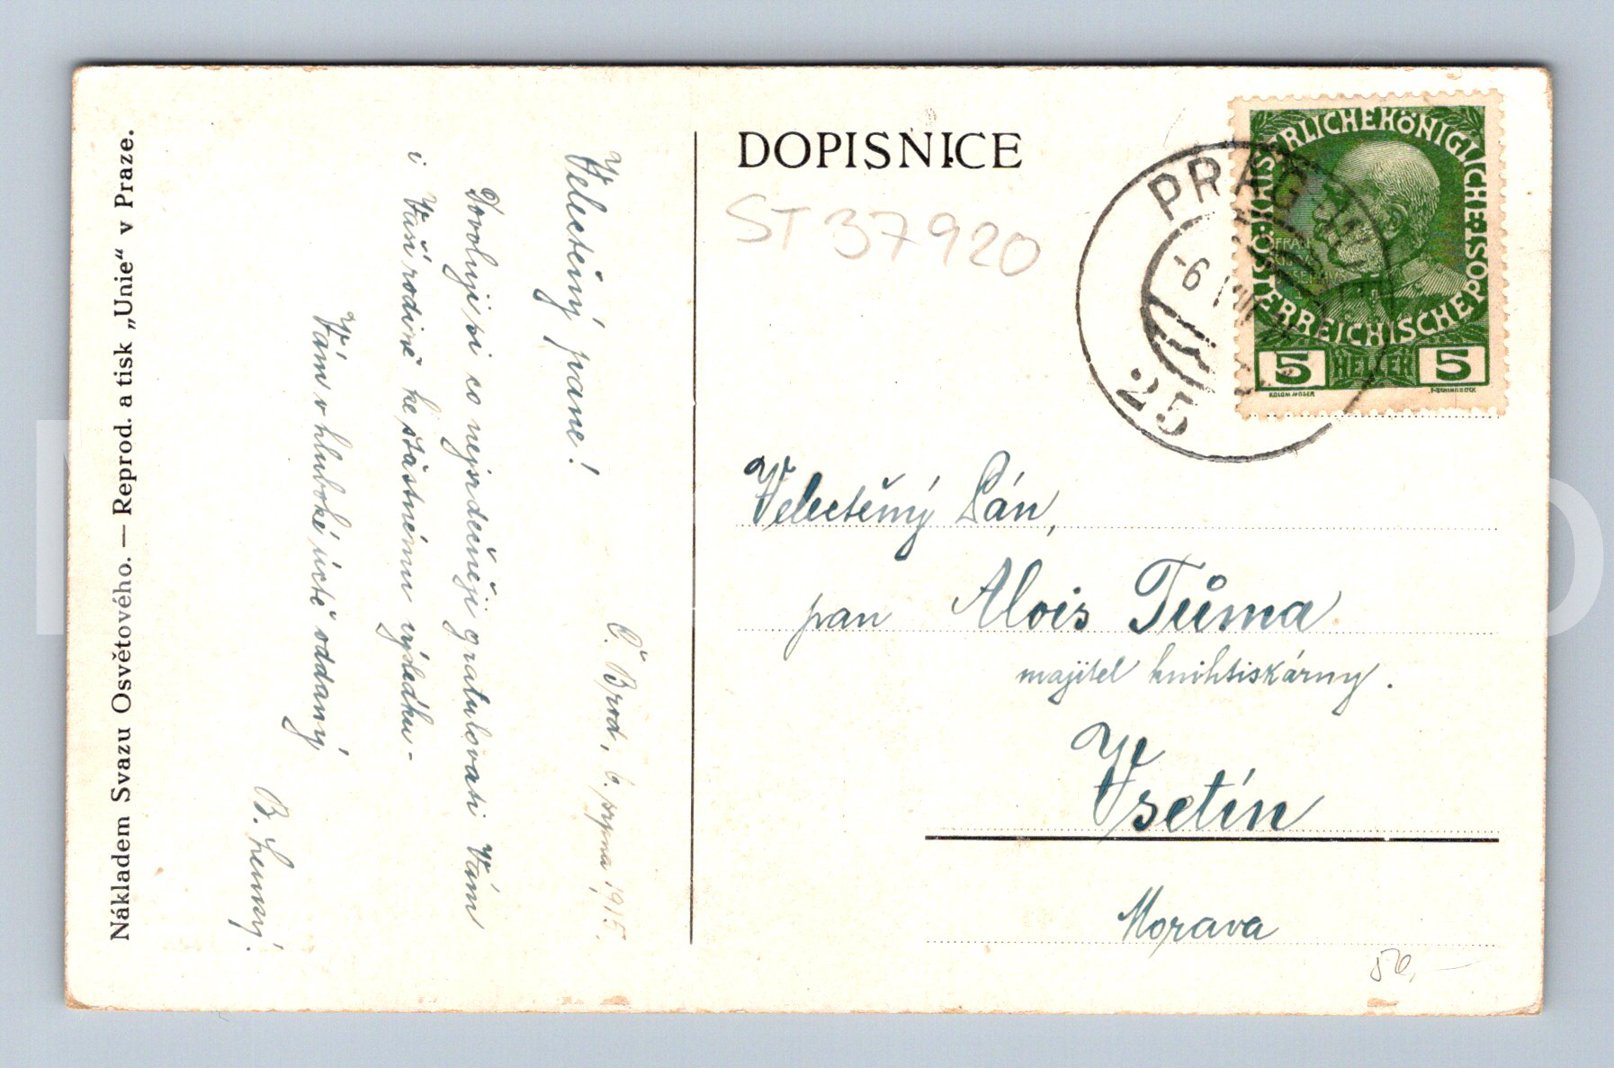 Nákladem Svazu Osvětového. — Reprod. a tisk „Unie“ v Praze.
Velectěný pane!
Č. Brod, 6. srpna 1915.
Dovoluji si co nejsrdečněji gratulovati Vám
i Vaší rodině ke šťastnému výsledku -
Vám v hluboké úctě oddaný
B.
DOPISNICE
ST 37920
PRAG
-6
25
KAISERLICHE KÖNIGLICHE
ÖSTERREICHISCHE POST
5 HELLER 5
KOLOM. MOSER
Velectěný Pán,
pan Alois Tůma
majitel knihtiskárny.
Vsetín
Morava
50,—